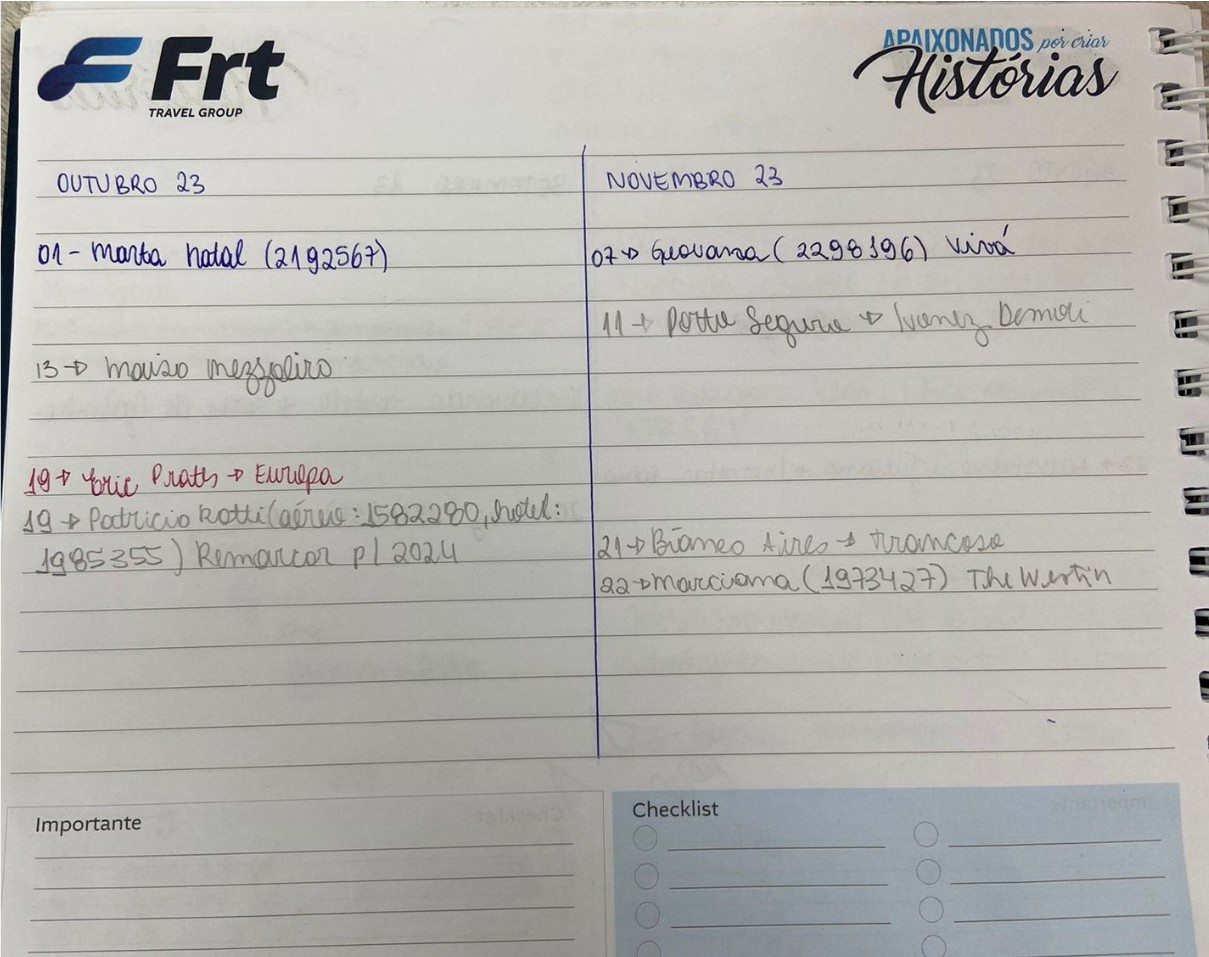 Frt
TRAVEL GROUP
APAIXONADOS por criar
Histórias
OUTUBRO 23
01 - Marta Natal (2192567)
13 → mezzaliro
19 → Eric Prates → Europa
19 → Patricia Rotti (aéreo: 1582280, hotel:
1985355) Remarcar p/ 2024
NOVEMBRO 23
07 → Geovana (2298196) Vivá
11 → Porto Seguro → Ivanez
21 → Aires → trancoso
22 → marciana (1973427) The Westin
Importante
Checklist